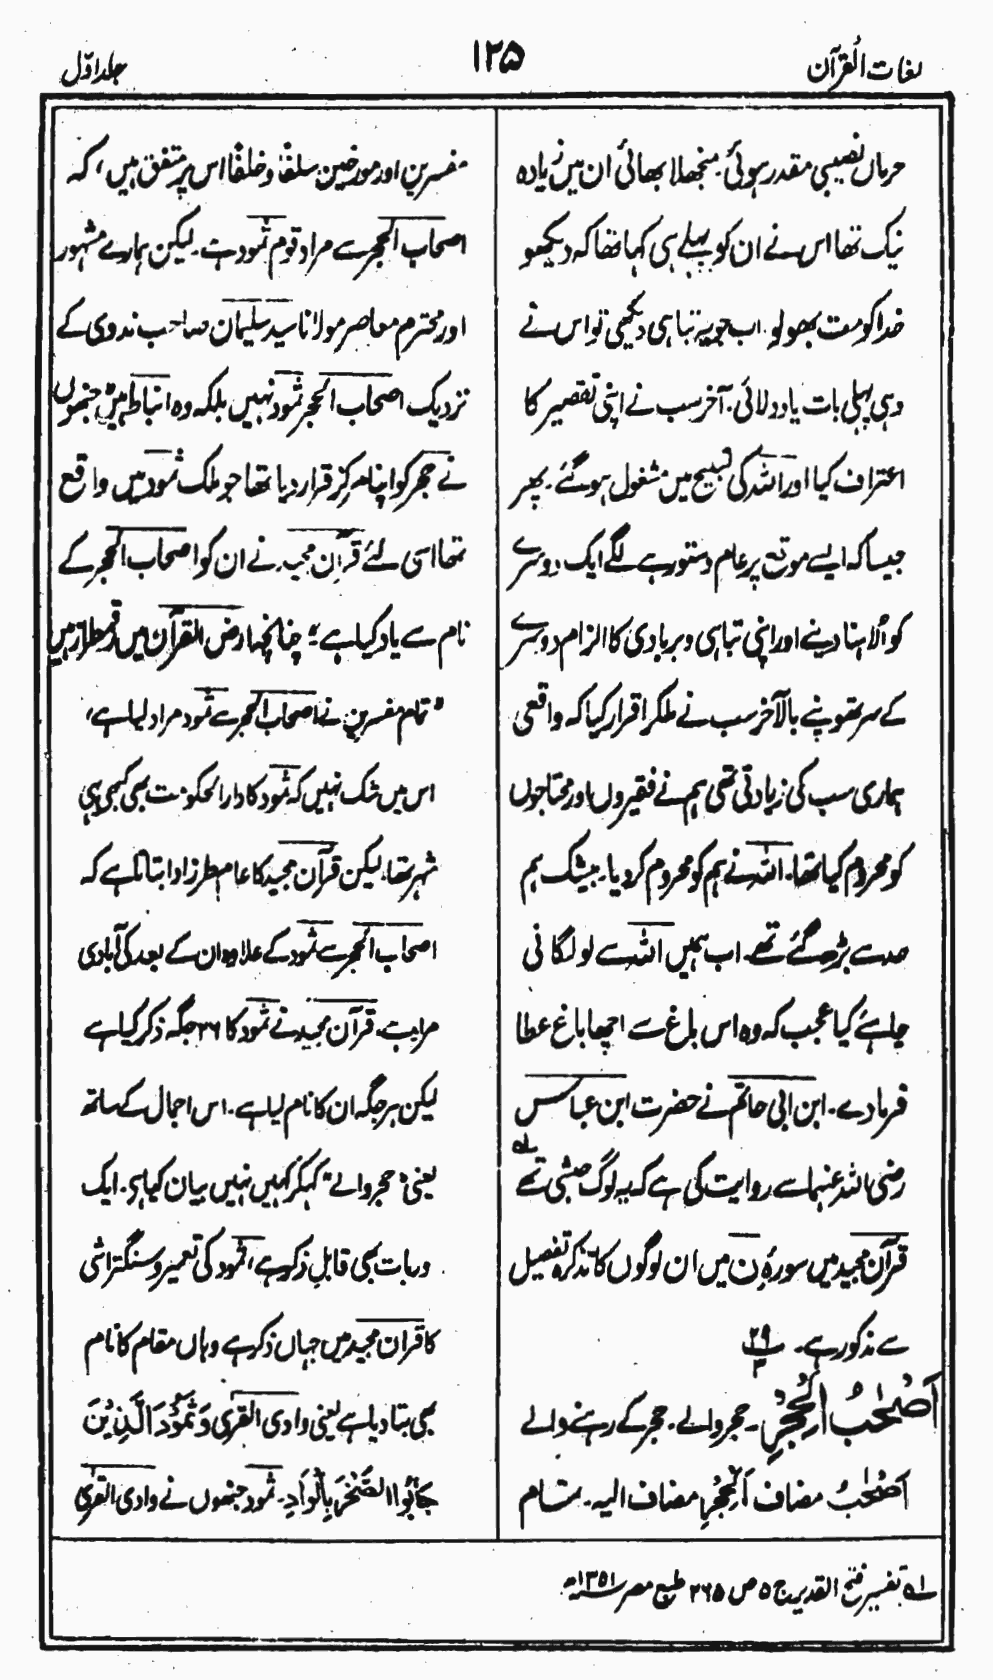 لغات القرآن
۱۲۵
جلد اوّل
حرماں نصیبی مقدر ہوئی۔ منجھلا بھائی ان میں زیادہ
نیک تھا اس نے ان کو پہلے ہی کہا تھا کہ دیکھو
خدا کو مت بھولو۔ اب جو یہ تباہی دیکھی تو اس نے
وہی پہلی بات یاد دلائی۔ آخر سب نے اپنی تقصیر کا
اعتراف کیا اور اللہ کی تسبیح میں مشغول ہو گئے۔ پھر
جیسا کہ ایسے موقع پر عام دستور ہے لگے ایک دوسرے
کو اُلاہنا دینے اور اپنی تباہی و بربادی کا الزام دوسرے
کے سر تھوپنے بالآخر سب نے ملکر اقرار کیا کہ واقعی
ہماری سب کی زیادتی تھی ہم نے فقیروں اور محتاجوں
کو محروم کیا تھا۔ اللہ نے ہم کو محروم کر دیا۔ بیشک ہم
حد سے بڑھ گئے تھے۔ اب ہمیں اللہ سے لو لگانی
چاہئے کیا عجب کہ وہ اس باغ سے اچھا باغ عطا
فرمادے۔ ابن ابی حاتم نے حضرت ابن عباس
رضی اللہ عنہما سے روایت کی ہے کہ یہ لوگ حبشی تھے لہ
قرآن مجید میں سورۂ ن میں ان لوگوں کا تذکرہ تفصیل
سے مذکور ہے۔ ۲۹/۳
اَصْحٰبُ الْحِجْرِ۔ حجر والے۔ حجر کے رہنے والے
اَصْحٰبُ مضاف اَلْحِجْرِ مضاف الیہ۔ تمام
مفسرین اور مورخین سلفًا و خلفًا اس پر متفق ہیں، کہ
اصحاب الحجر سے مراد قوم ثمود ہے۔ لیکن ہمارے مشہور
اور محترم معاصر مولانا سید سلیمان صاحب ندوی کے
نزدیک اصحاب الحجر ثمود نہیں بلکہ وہ انباط ہیں جنہوں
نے حجر کو اپنا مرکز قرار دیا تھا جو ملک ثمود میں واقع
تھا اسی لئے قرآن مجید نے ان کو اصحاب الحجر کے
نام سے یاد کیا ہے؛ چنانچہ ارض القرآن میں رقمطراز ہیں
" تمام مفسرین نے اصحاب الحجر سے ثمود مراد لیا ہے،
اس میں شک نہیں کہ ثمود کا دارالحکومت بھی کبھی یہی
شہر تھا، لیکن قرآن مجید کا عام طرز ادا بتاتا ہے کہ
اصحاب الحجر سے ثمود کے علاوہ ان کے بعد کی آبادی
مراد ہے۔ قرآن مجید نے ثمود کا ۲۶ جگہ ذکر کیا ہے
لیکن ہر جگہ ان کا نام لیا ہے۔ اس اجمال کے ساتھ
یعنی "حجر والے" کہکر کہیں نہیں بیان کیا ہے۔ ایک
اور بات بھی قابل ذکر ہے، ثمود کی تعمیر و سنگتراشی
کا قرآن مجید میں جہاں ذکر ہے وہاں مقام کا نام
بھی بتا دیا ہے یعنی وادی القریٰ وَثَمُوْدَ الَّذِیْنَ
جَابُوا الصَّخْرَ بِالْوَادِ۔ ثمود جنھوں نے وادی القریٰ
لہ تفسیر فتح القدیر ج ۵ ص ۲۶۵ طبع مصر ۱۳۵۱ھ